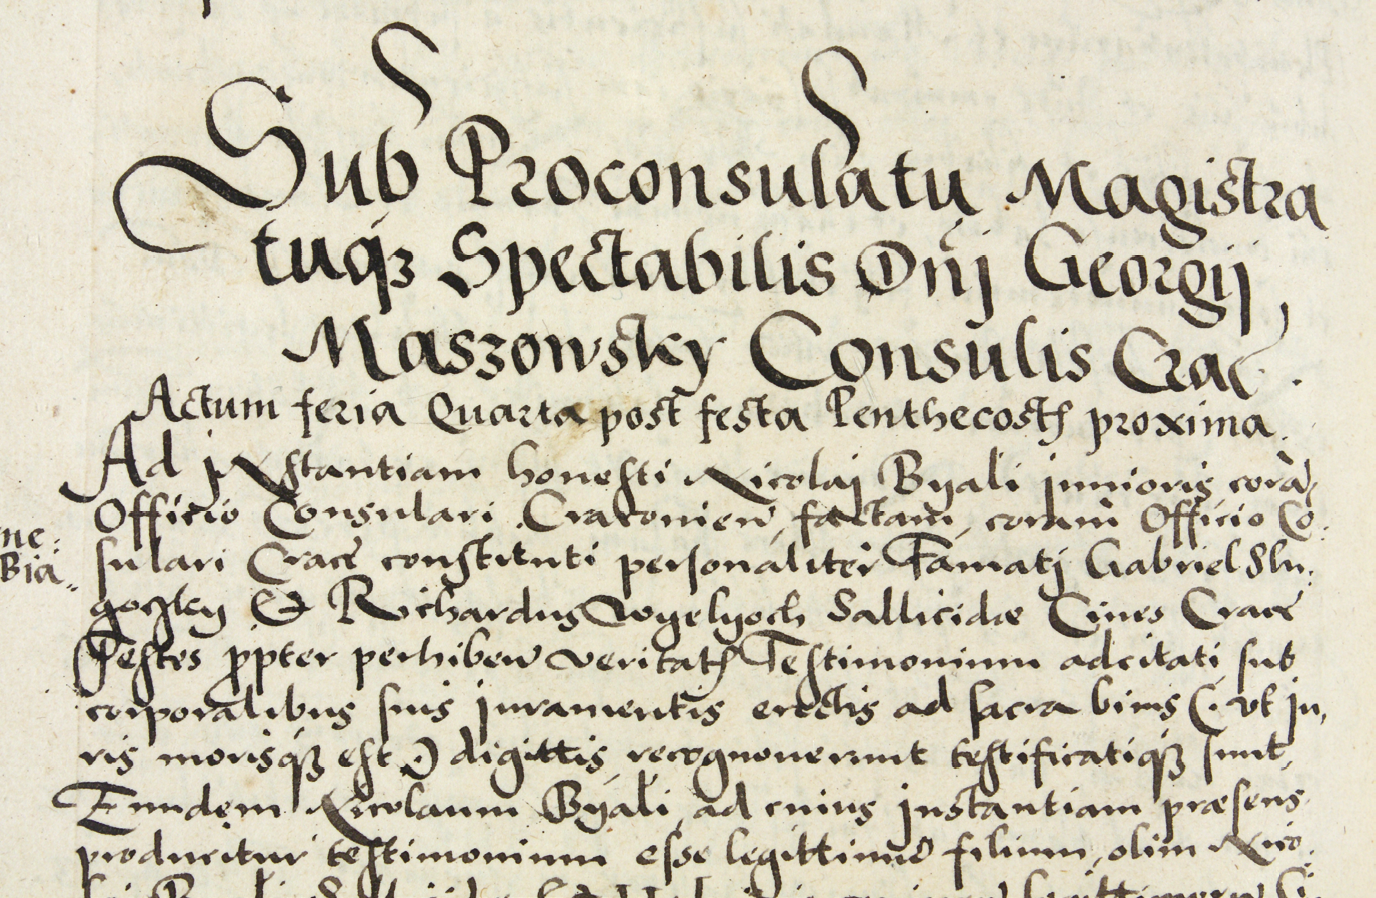 Sub Proconsulatu Magistra
tuqȝ Spectabilis Dnj Georgij
Maszowsky Consulis Crac.
Actum feria Quarta post festa Penthecost proxima.
Ad jnstantiam honesti Nicolaj Byali junioris corā
Officio Consulari Cracovien, factam, coram Officio Co:
sulari Crace constituti personaliter Famatj Gabriel
& Richardus Sallicidæ Cives Crace
Testes ppter perhiben veritat Testimonium adcitati sub
corporalibus suis juramentis erectis ad sacra binis (. vt ju,
ris morisqȝ est .) digittis recognoverunt testificatiqȝ sunt,
Eundem Nicolaum Byali, ad cuius jnstantiam præsens
producitur testimonium esse legittimū filium, olim Nico:
ne:
Bia